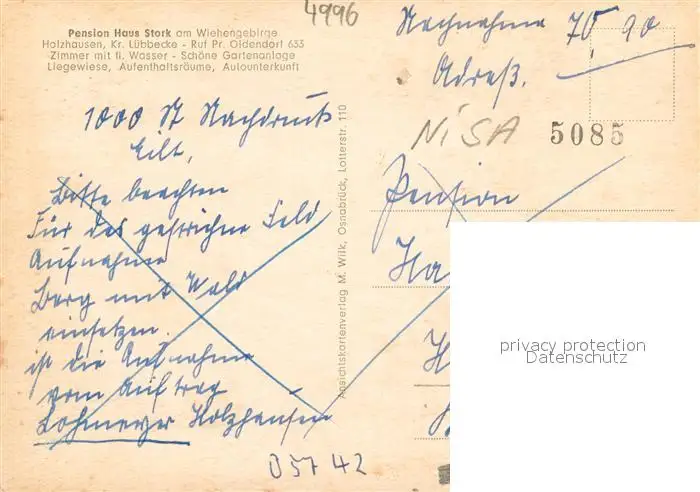 4996
Pension Haus Stork am Wiehengebirge
Holzhausen, Kr. Lübbecke - Ruf Pr. Oldendorf 633
Zimmer mit fl. Wasser - Schöne Gartenanlage
Liegewiese, Aufenthaltsräume, Autounterkunft
Nachnahme 70 90
Adreß.
1000 St Nachdruck
Eilt,
NiSA
5085
Bitte beachten
Für das gestrichne Feld
Aufnahme
Berg mit Wald
einsetzen.
ist die Aufnahme
vom Auftrag
Lohmeyer Holzhausen
Ansichtskartenverlag M. Wilk, Osnabrück, Lotterstr. 110
Pension
Ha
H
privacy protection
Datenschutz
05742